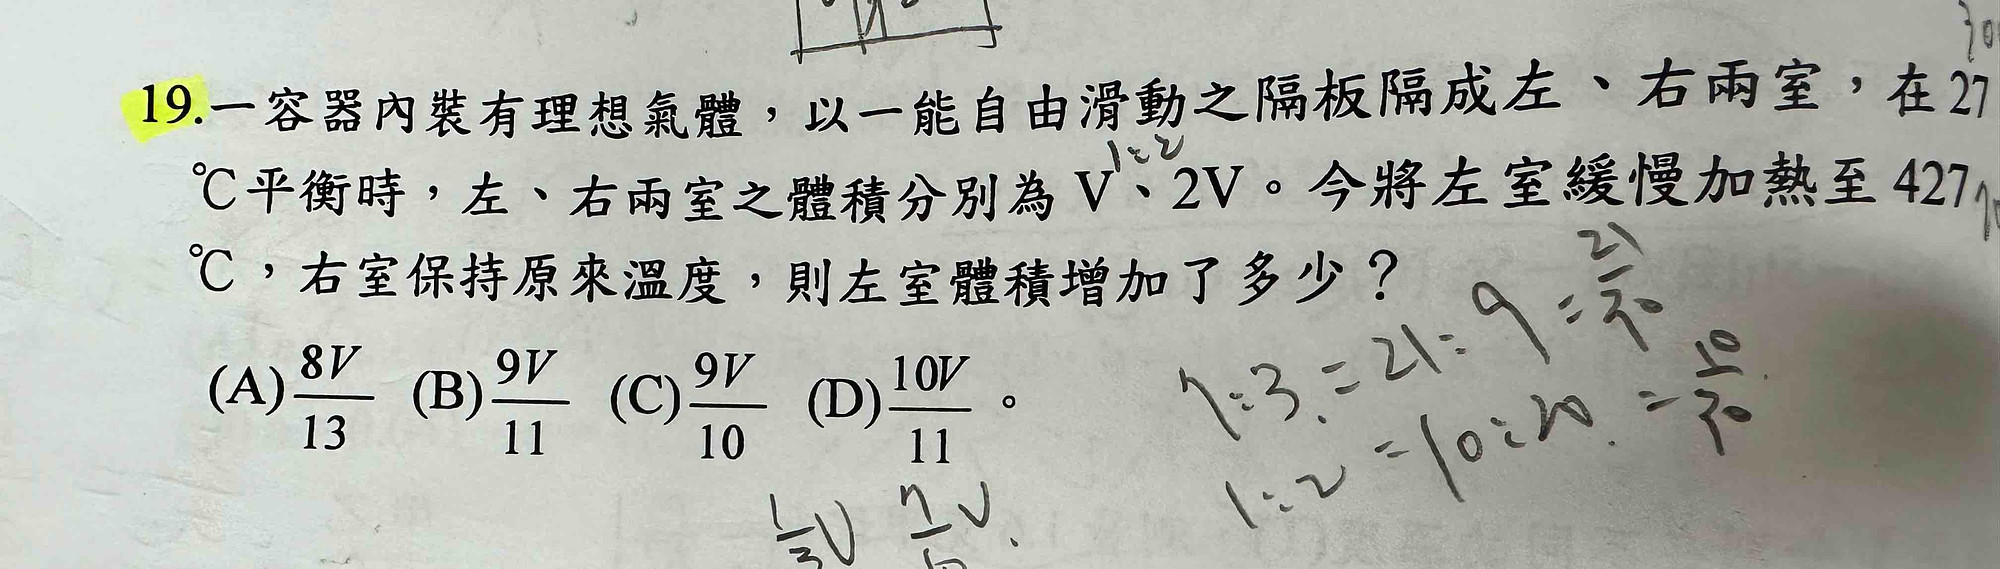 19.一容器內裝有理想氣體，以一能自由滑動之隔板隔成左、右兩室，在27
1:2
℃平衡時，左、右兩室之體積分別為V、2V。今將左室緩慢加熱至427
℃，右室保持原來溫度，則左室體積增加了多少？
(A) 8V/13 (B) 9V/11 (C) 9V/10 (D) 10V/11 。
7:3=21:9=21/30
1:2=10:20.=10/30
1/3V